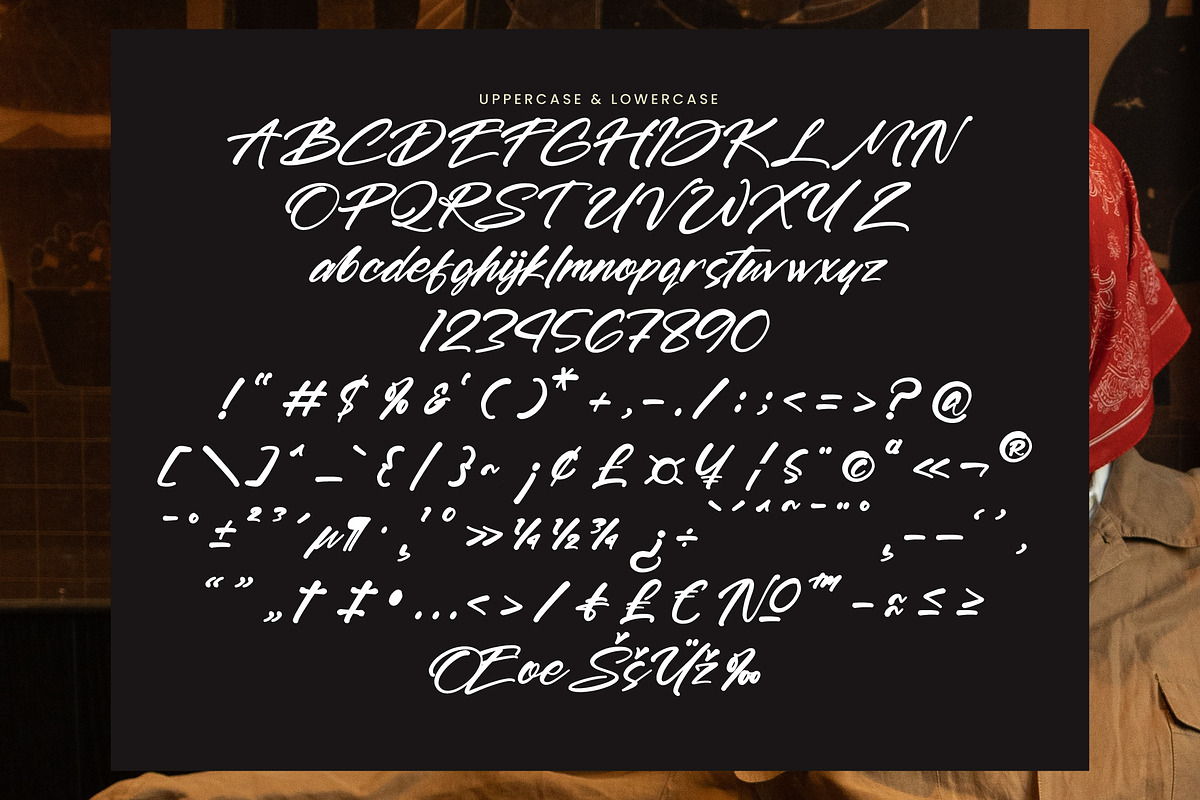 UPPERCASE & LOWERCASE
ABCDEFGHIJKLMN
OPQRSTUVWXYZ
abcdefghijklmnopqrstuvwxyz
1234567890
!"#$%&'()*+,-./:;<=>?@
[\]^_`{|}~¡¢£¤¥¦§¨©ª«¬®
¯°±²³´µ¶·¸¹º»¼½¾¿÷`´^~¯¨°¸–—‘’‚
“”„†‡•…<>/₺£€№™−≈≤≥
ŒœŠšŸž‰